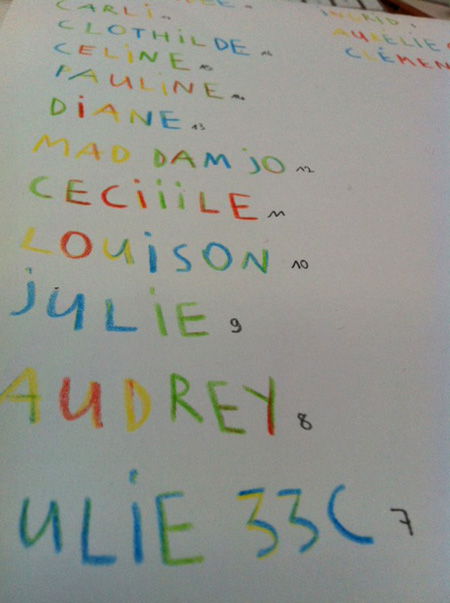 CARLI
CLOTHILDE 16
CELINE 15
PAULINE 14
DIANE 13
MAD DAM JO 12
CECIIILE 11
LOUISON 10
JULIE 9
AUDREY 8
ULIE 33C 7
INGRID
AURELIE
CLÉMEN